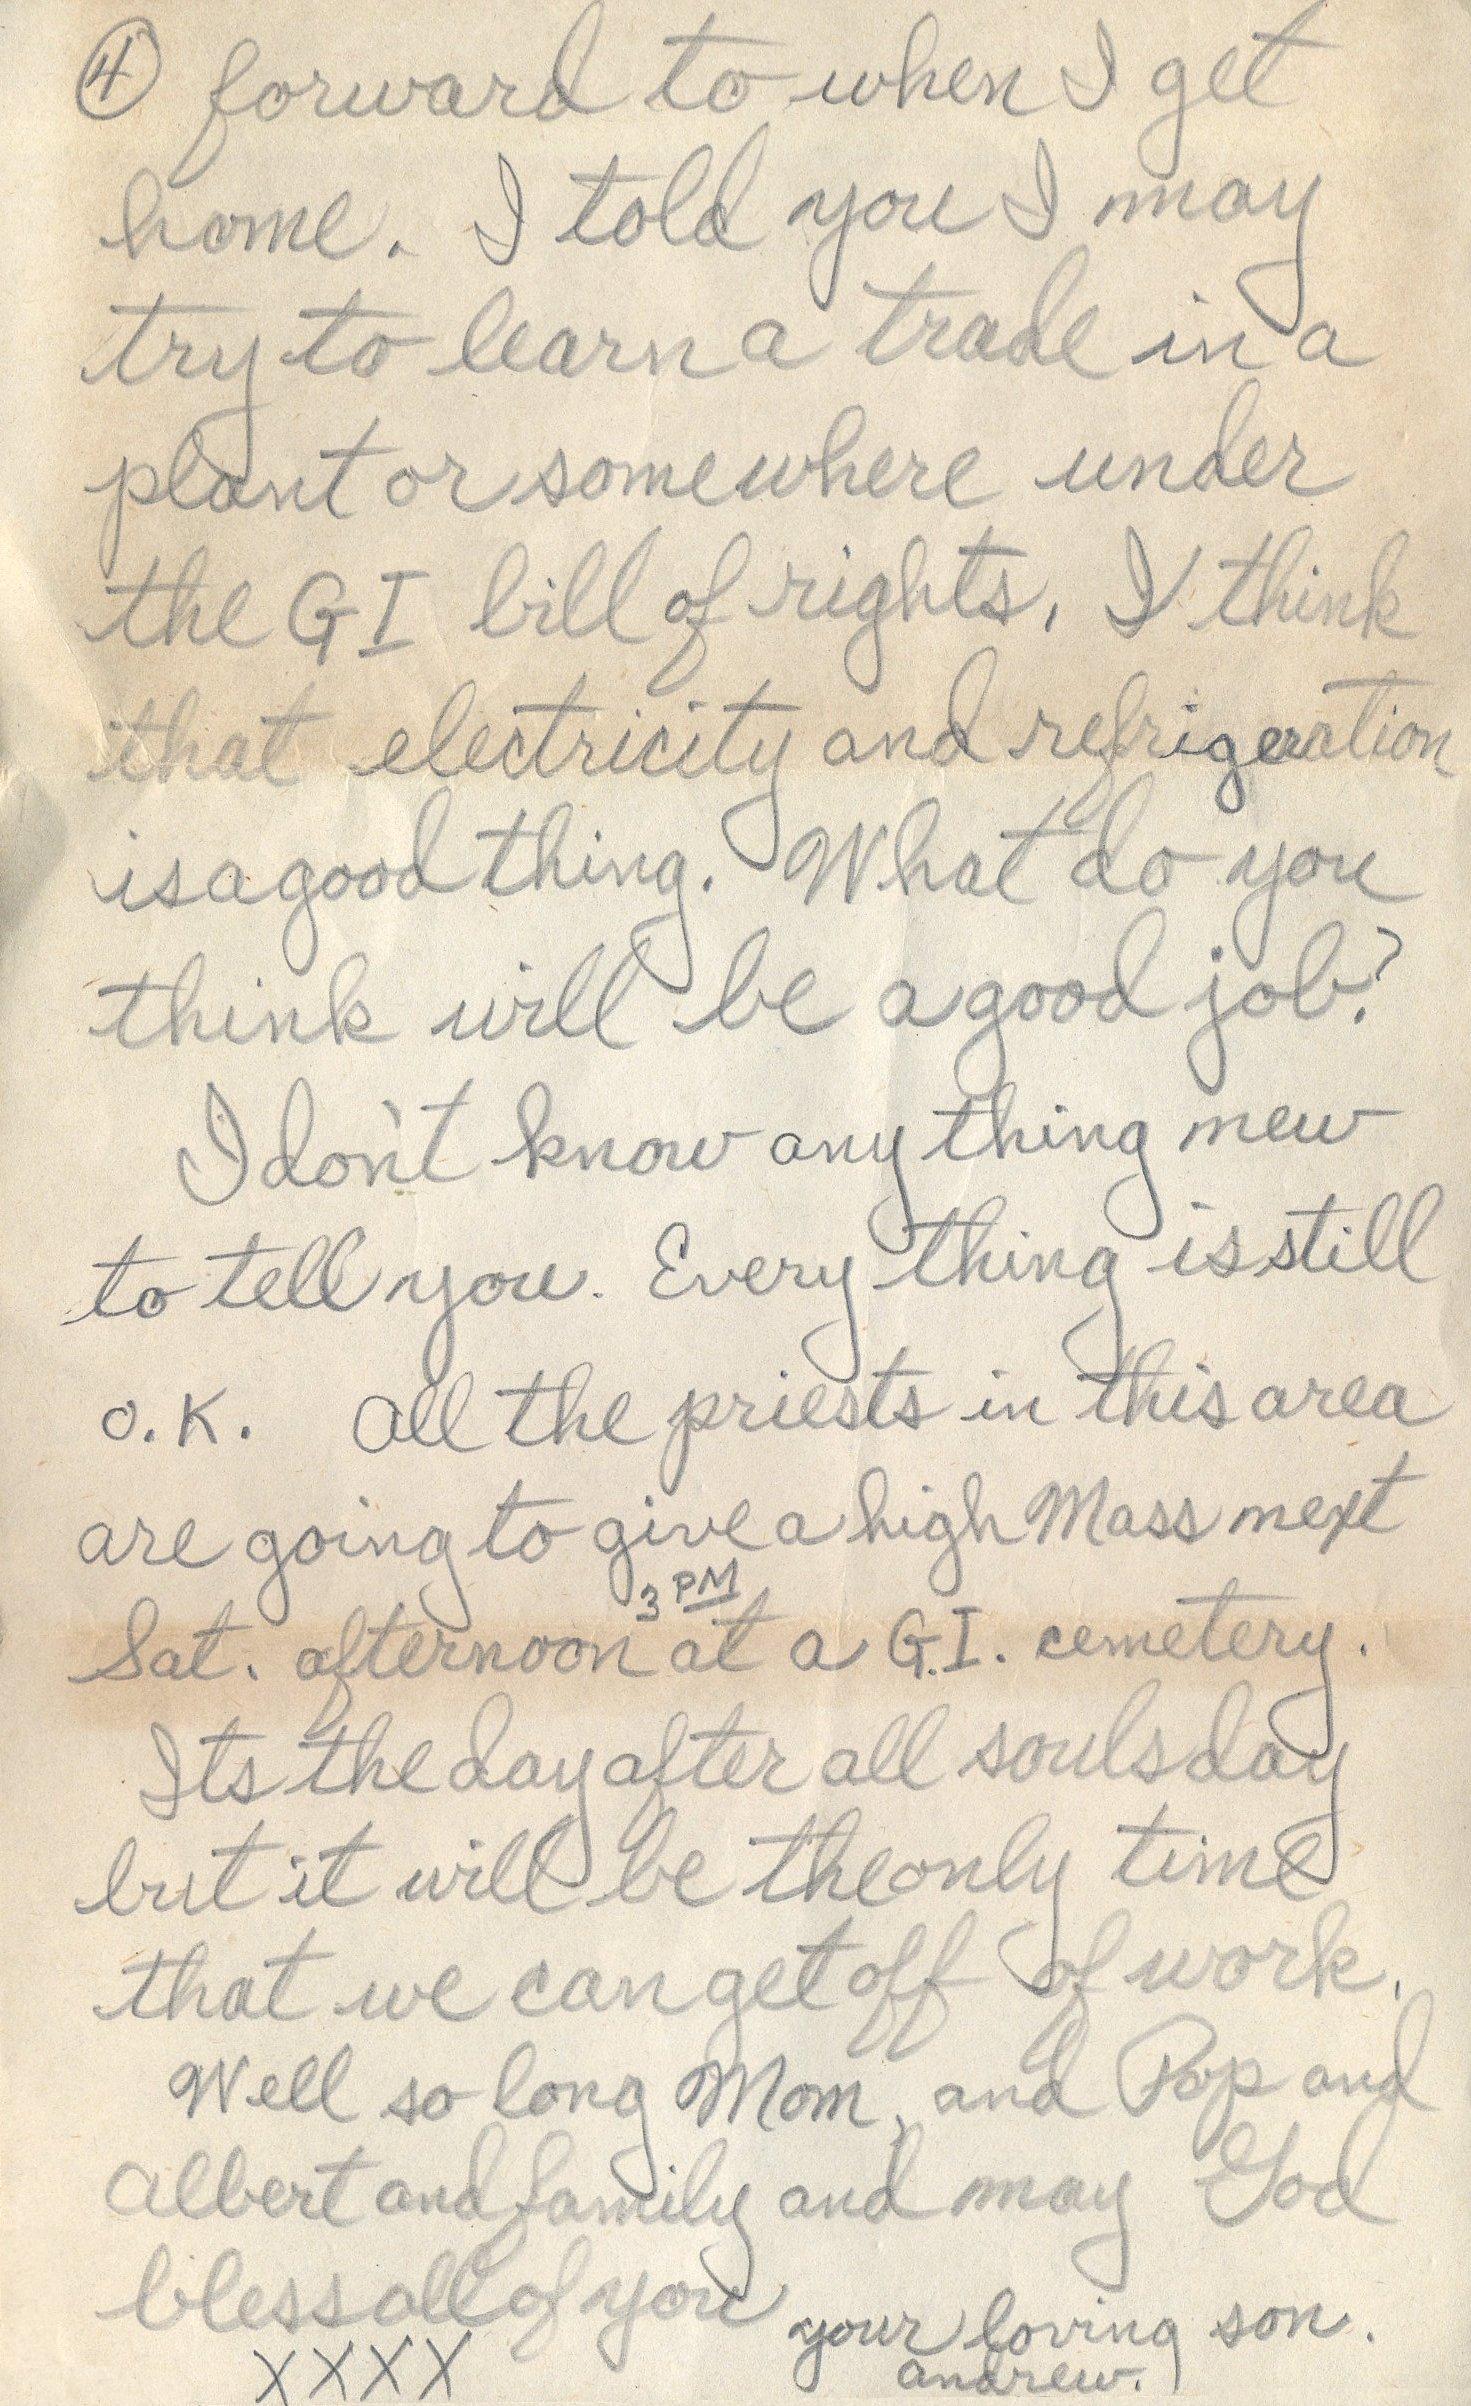 ④ forward to when I get
home. I told you I may
try to learn a trade in a
plant or somewhere under
the GI bill of rights. I think
that electricity and refrigeration
is a good thing. What do you
think will be a good job?
I don't know any thing new
to tell you. Every thing is still
O.K. All the priests in this area
are going to give a high Mass next
3 PM
Sat. afternoon at a G.I. cemetery.
Its the day after all souls day
but it will be the only time
that we can get off of work.
Well so long Mom, and Pop and
Albert and family and may God
bless all of you
your loving son.
XXXX
Andrew.